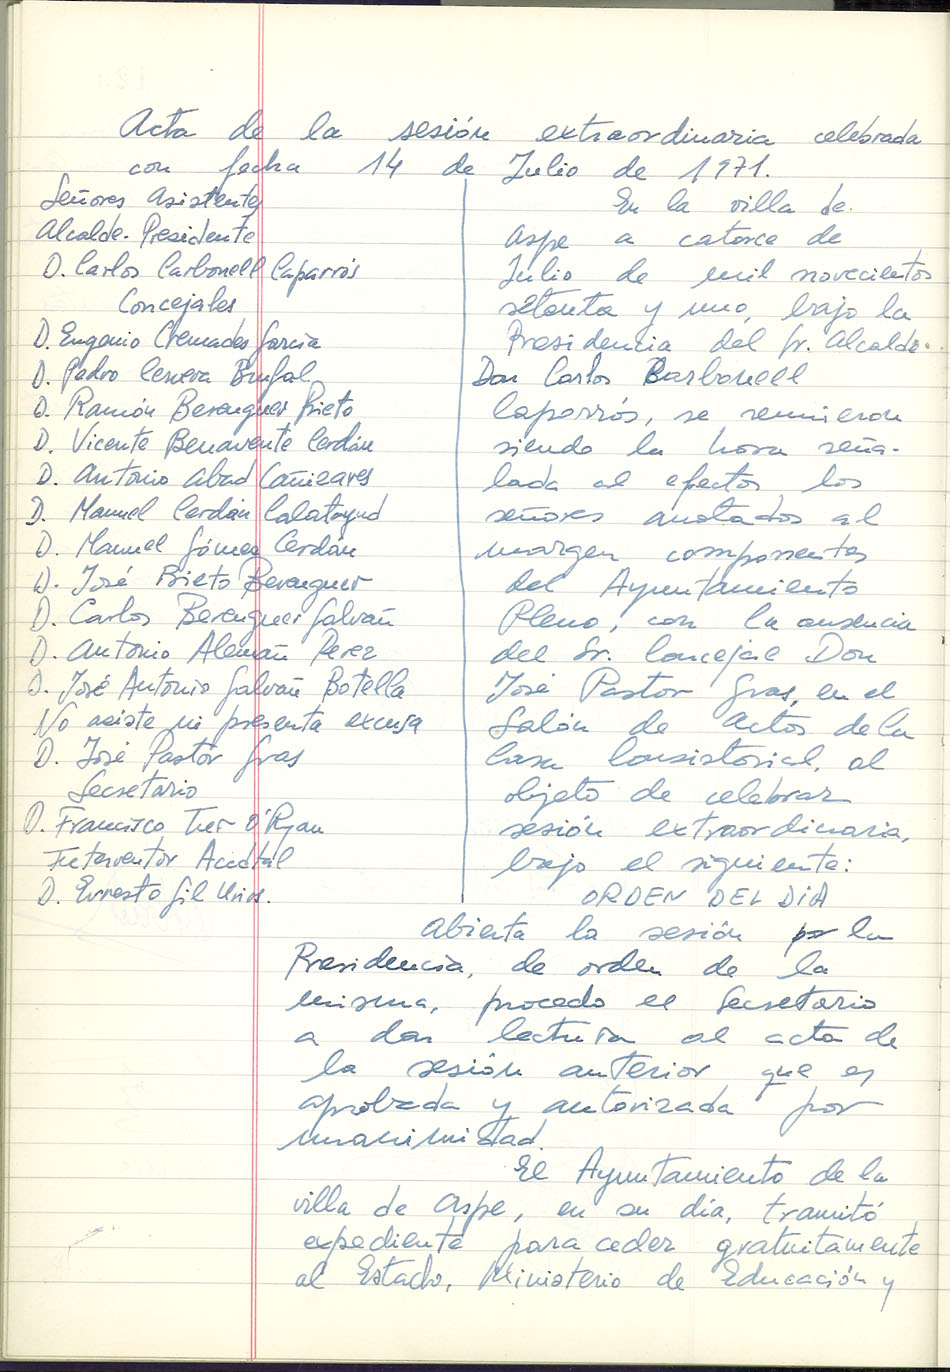 Acta de la sesión extraordinaria celebrada
con fecha 14 de Julio de 1971.
Señores Asistentes
Alcalde-Presidente
D. Carlos Carbonell Caparrós
Concejales
D. Eugenio Cremades García
D. Pedro Cerveva Brufal
D. Ramón Berenguer Prieto
D. Vicente Benavente Cerdán
D. Antonio Abad Cañizares
D. Manuel Cerdán Calatayud
D. Manuel Gómez Cerdán
D. José Prieto Berenguer
D. Carlos Berenguer Galvañ
D. Antonio Alemañ Perez
D. José Antonio Galvañ Botella
No asiste ni presenta excusa
D. José Pastor Gras
Secretario
D. Francisco Ther O'Ryan
Interventor Acctal
D. Ernesto Gil
En la villa de
Aspe a catorce de
Julio de mil novecientos
setenta y uno, bajo la
Presidencia del Sr. Alcalde..
Don Carlos Carbonell
Caparrós, se reunieron
siendo la hora seña-
lada al efectos los
señores anotados al
margen componentes
del Ayuntamiento
Pleno, con la ausencia
del Sr. Concejal Don
José Pastor Gras, en el
Salón de Actos de la
Casa Consistorial, al
objeto de celebrar
sesión extraordinaria,
bajo el siguiente:
ORDEN DEL DIA
Abierta la sesión por la
Presidencia, de orden de la
misma, procedo el Secretario
a dar lectura al acta de
la sesión anterior que es
aprobada y autorizada por
unanimidad
El Ayuntamiento de la
villa de Aspe, en su día, tramitó
expediente para ceder gratuitamente
al Estado, Ministerio de Educación y